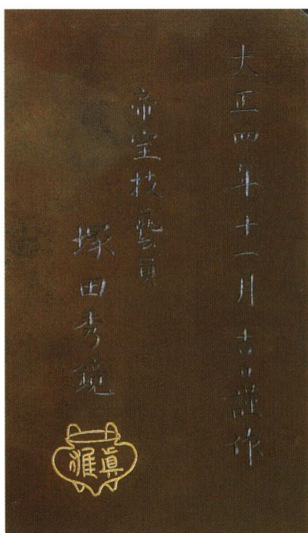 大正四年十一月吉日謹作
帝室技藝員
塚田秀鏡
眞雅